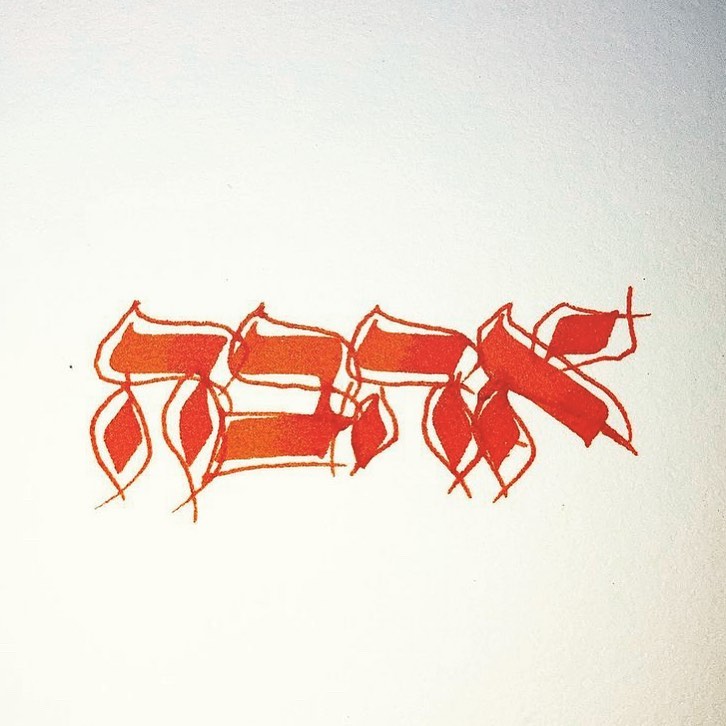 אהבה